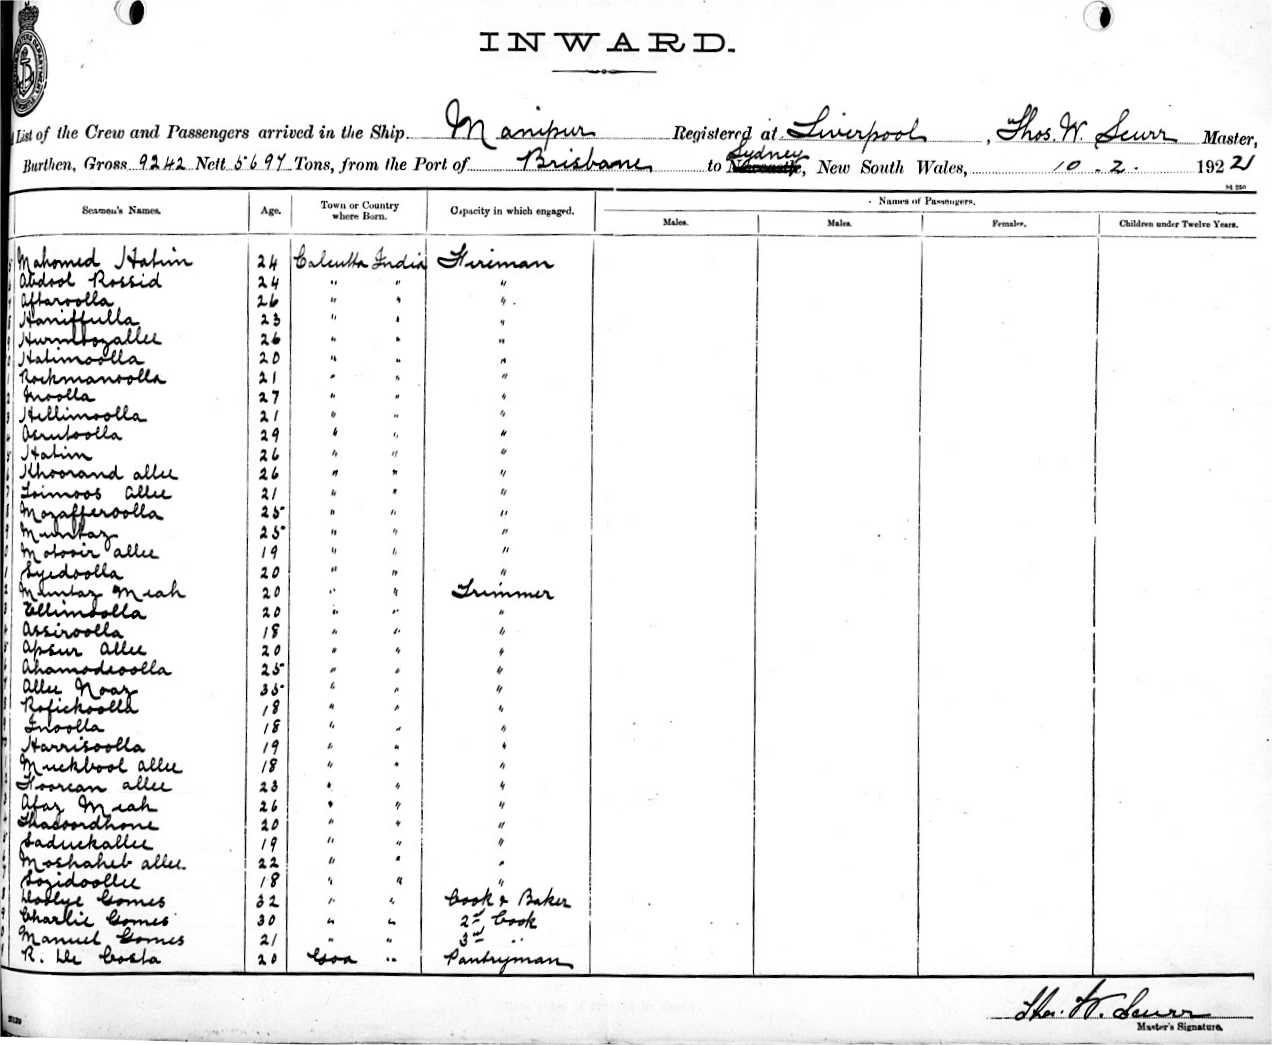 INWARD.
List of the Crew and Passengers arrived in the Ship Manipur Registered at Liverpool, Thos. W. Scurr Master,
Burthen, Gross 9242 Nett 5697 Tons, from the Port of Brisbane to Sydney, New South Wales, 10 . 2 . 1921
Seamen's Names. Age. Town or Country where Born. Capacity in which engaged. Names of Passengers.
Males. Males. Females. Children under Twelve Years.
Mahomed Hatim 24 Calcutta India Fireman
Abdool Rossid 24 " " "
Aftaroolla 26 " " "
Haniffulla 23 " " "
Hurmtozallee 26 " " "
Hatimoolla 20 " " "
Rockmanoolla 21 " " "
Inoolla 27 " " "
Hillimoolla 21 " " "
29 " " "
Hatim 26 " " "
Khoorand allee 26 " " "
Toimoos allee 21 " " "
Mozafferoolla 25 " " "
Mumtaz 25 " " "
Motosir allee 19 " " "
Syedoolla 20 " " "
Mumtaz Miah 20 " " Trimmer
Ellimoolla 20 " " "
Assiroolla 18 " " "
Apsur Allee 20 " " "
Ahamodeoolla 25 " " "
Allee Noaz 35 " " "
Rofickoolla 18 " " "
Inoolla 18 " " "
Harrisoolla 19 " " "
Muckbool allee 18 " " "
Noorean allee 23 " " "
Afaz Miah 26 " " "
20 " " "
Saduckallee 19 " " "
Moshaheb allee. 22 " " "
Sozidoollee 18 " " "
Gomes 32 " " Cook & Baker
Charlie Gomes 30 " " 2nd Cook
Manuel Gomes 21 " " 3rd "
R. De Costa 20 Goa " Pantryman
Thos. W. Scurr
Master's Signature.